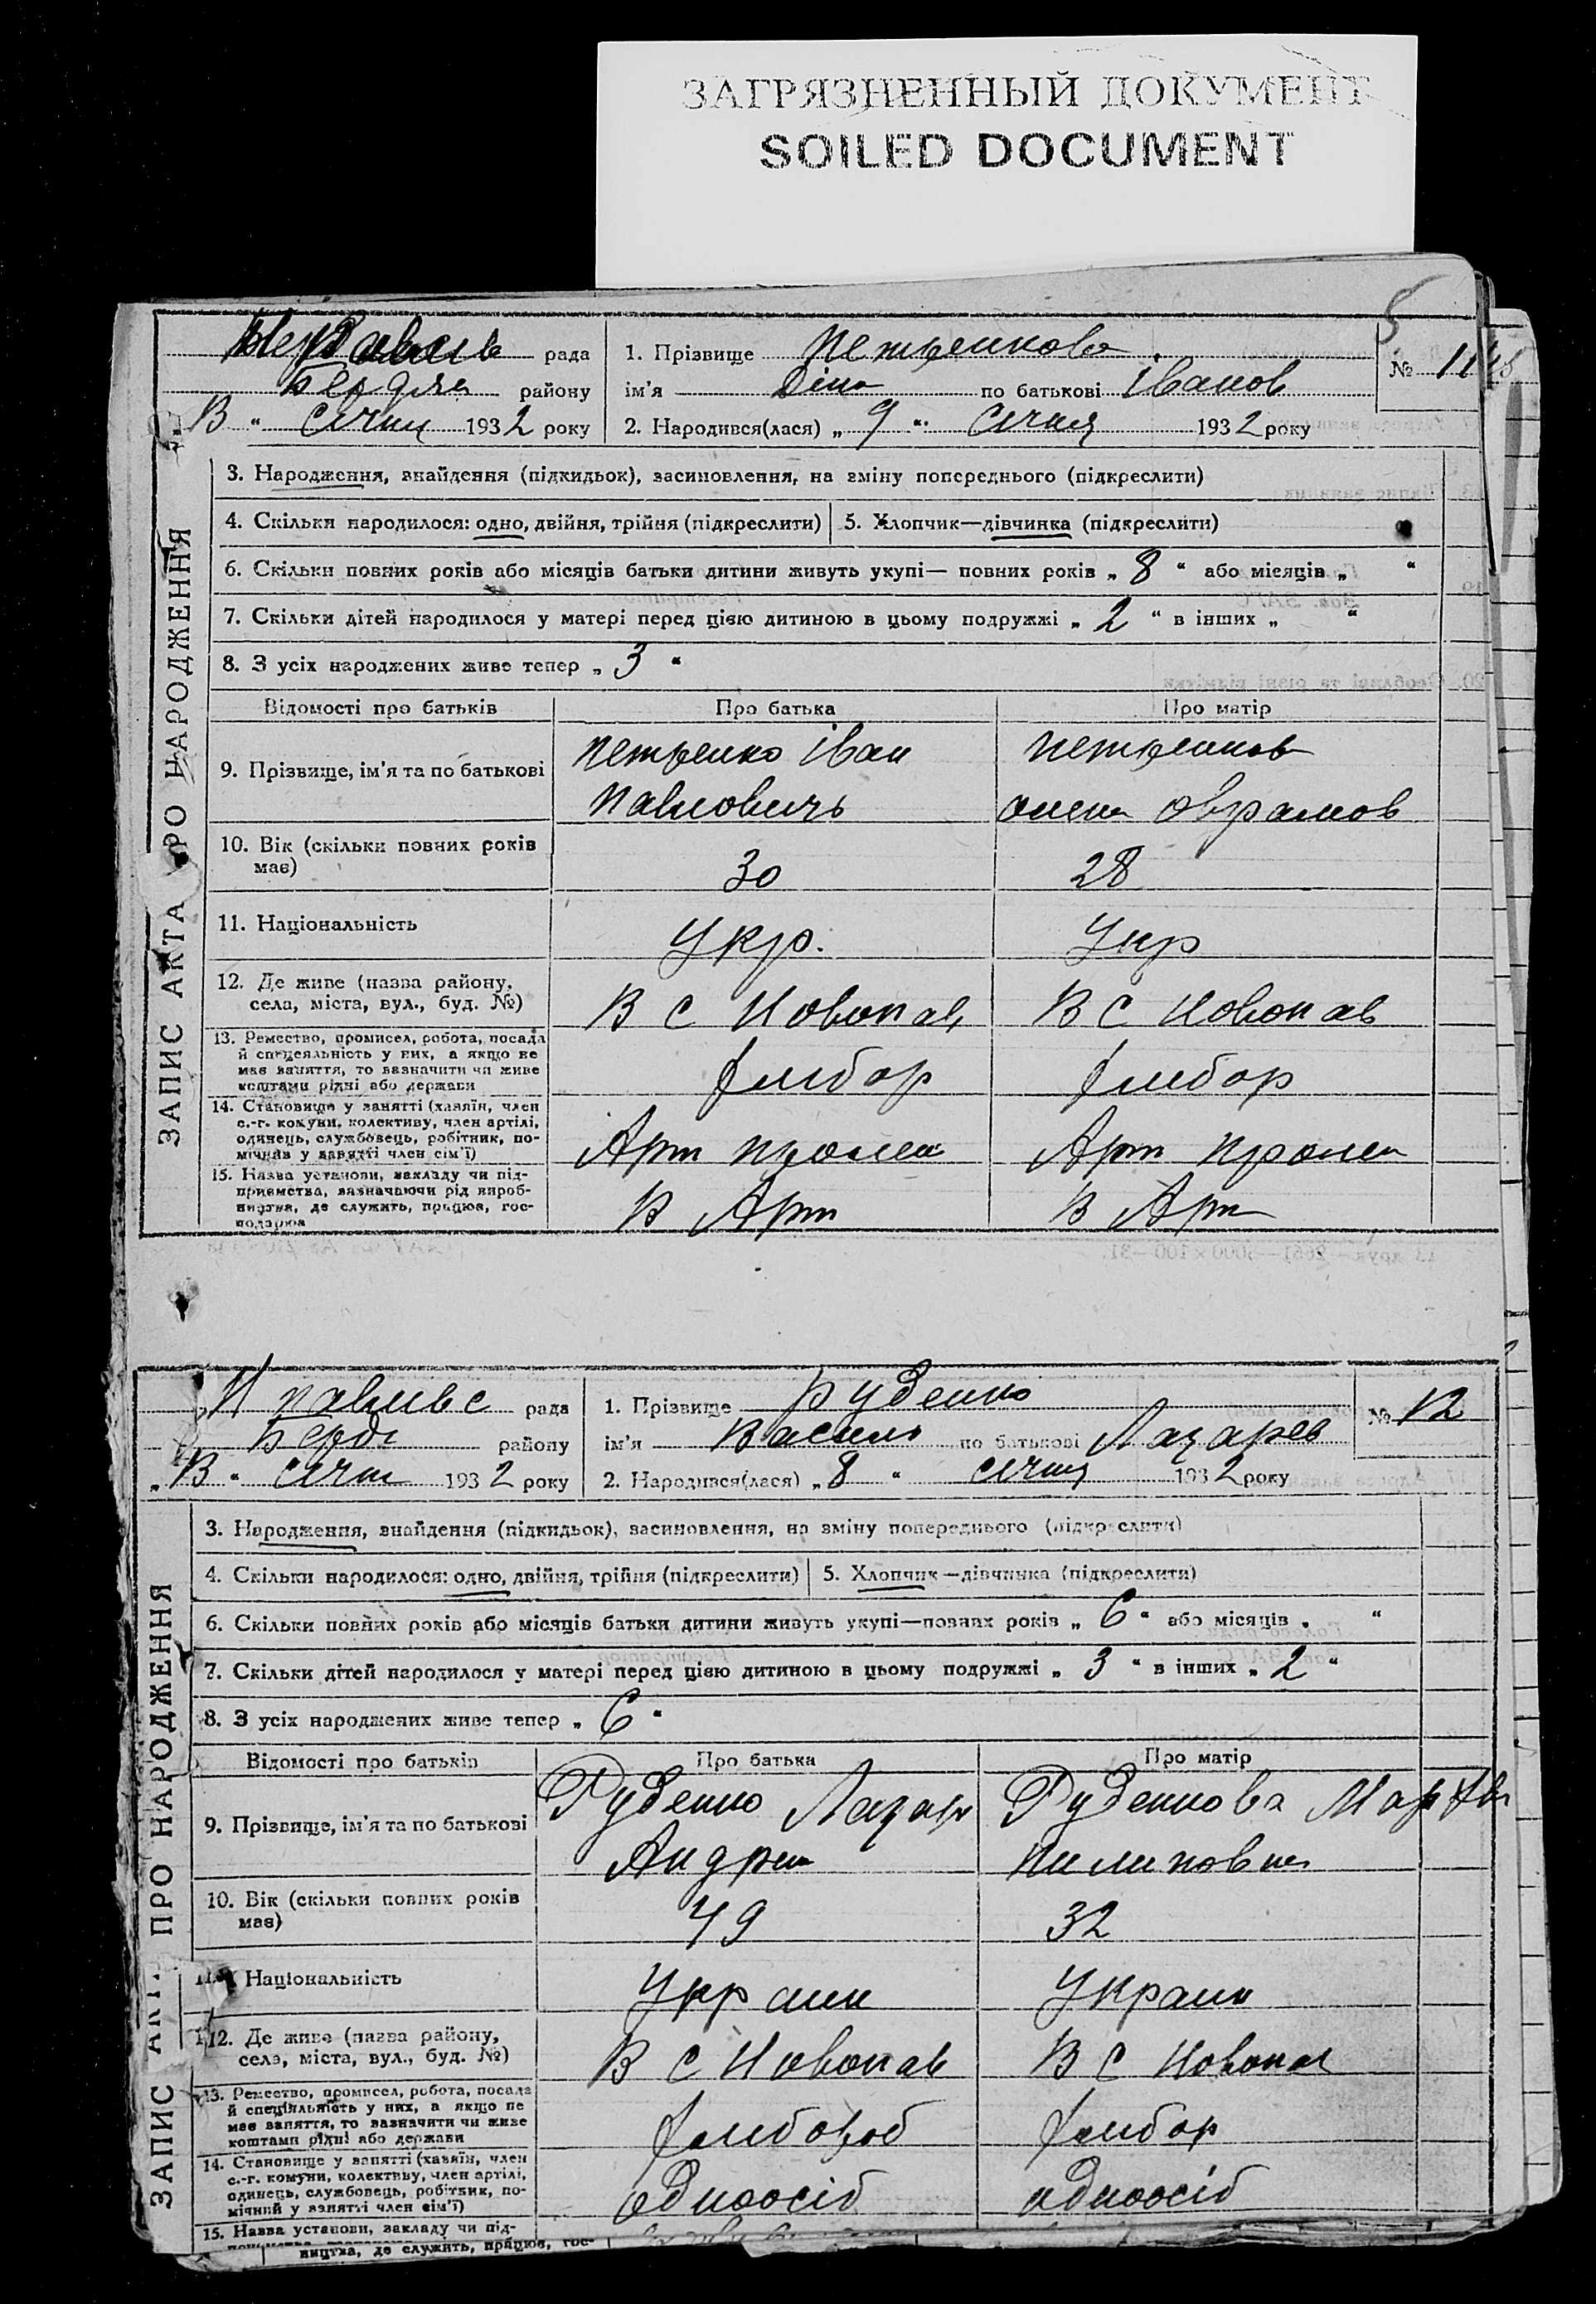 ЗАГРЯЗНЕННЫЙ ДОКУМЕНТ
SOILED DOCUMENT
5
рада
района району
„ 13 “ січня 1932 року
1. Прізвище Петренкова
ім'я Діна по батькові Іванов
№ 11
2. Народився(лася) „ 9 “ січня 1932 року
ЗАПИС АКТА ПРО НАРОДЖЕННЯ
3. Народження, знайдення (підкидьок), засиновлення, на зміну попереднього (підкреслити)
4. Скільки народилося: одно, двійня, трійня (підкреслити) 5. Хлопчик—дівчинка (підкреслити)
6. Скільки повних років або місяців батьки дитини живуть укупі— повних років „ 8 “ або місяців „ “
7. Скільки дітей народилося у матері перед цією дитиною в цьому подружжі „ 2 “ в інших „ “
8. З усіх народжених живе тепер „ 3 “
Відомості про батьків Про батька Про матір
9. Прізвище, ім'я та по батькові
Петренко Іван Петренков
Павловичь Олена Оврамов
10. Вік (скільки повних років має) 30 28
11. Національність Укр. Укр
12. Де живе (назва району, села, міста, вул., буд. №) В С Новопав В С Новопав
13. Ремество, промисел, робота, посада
й спеціяльність у них, а якщо не
має заняття, то зазначити чи живе
коштами рідні або держави
14. Становище у занятті (хазяїн, член
с.-г. комуни, колективу, член артілі,
одинець, службовець, робітник, по-
мічний у занятті член сім'ї)
Арт Арт
15. Назва установи, закладу чи під-
приємства, зазначаючи рід вироб-
ництва, де служить, працює, гос-
подарює
В Арт В Арт
Н павлівс рада
Берд району
„ 13 “ січня 1932 року
1. Прізвище Руденко
ім'я Василь по батькові Лазарев
№ 12
2. Народився(лася) „ 8 “ січня 1932 року
ЗАПИС АКТ ПРО НАРОДЖЕННЯ
3. Народження, знайдення (підкидьок), засиновлення, на зміну попереднього (підкреслити)
4. Скільки народилося: одно, двійня, трійня (підкреслити) 5. Хлопчик—дівчинка (підкреслити)
6. Скільки повних років або місяців батьки дитини живуть укупі—повних років „ 6 “ або місяців „ “
7. Скільки дітей народилося у матері перед цією дитиною в цьому подружжі „ 3 “ в інших „ 2 “
8. З усіх народжених живе тепер „ 6 “
Відомості про батьків Про батька Про матір
9. Прізвище, ім'я та по батькові
Руденко Лазар Руденкова
Андрій Пилиповна
10. Вік (скільки повних років має) 49 32
11. Національність Україн Україн
12. Де живе (назва району, села, міста, вул., буд. №) В С Новопав В С Новопав
13. Ремество, промисел, робота, посада
й спеціяльність у них, а якщо не
має заняття, то зазначити чи живе
коштами рідні або держави
14. Становище у занятті (хазяїн, член
с.-г. комуни, колективу, член артілі,
одинець, службовець, робітник, по-
мічний у занятті член сім'ї)
одноосіб одноосіб
15. Назва установи, закладу чи під-
ництва, де служить, працює, гос-